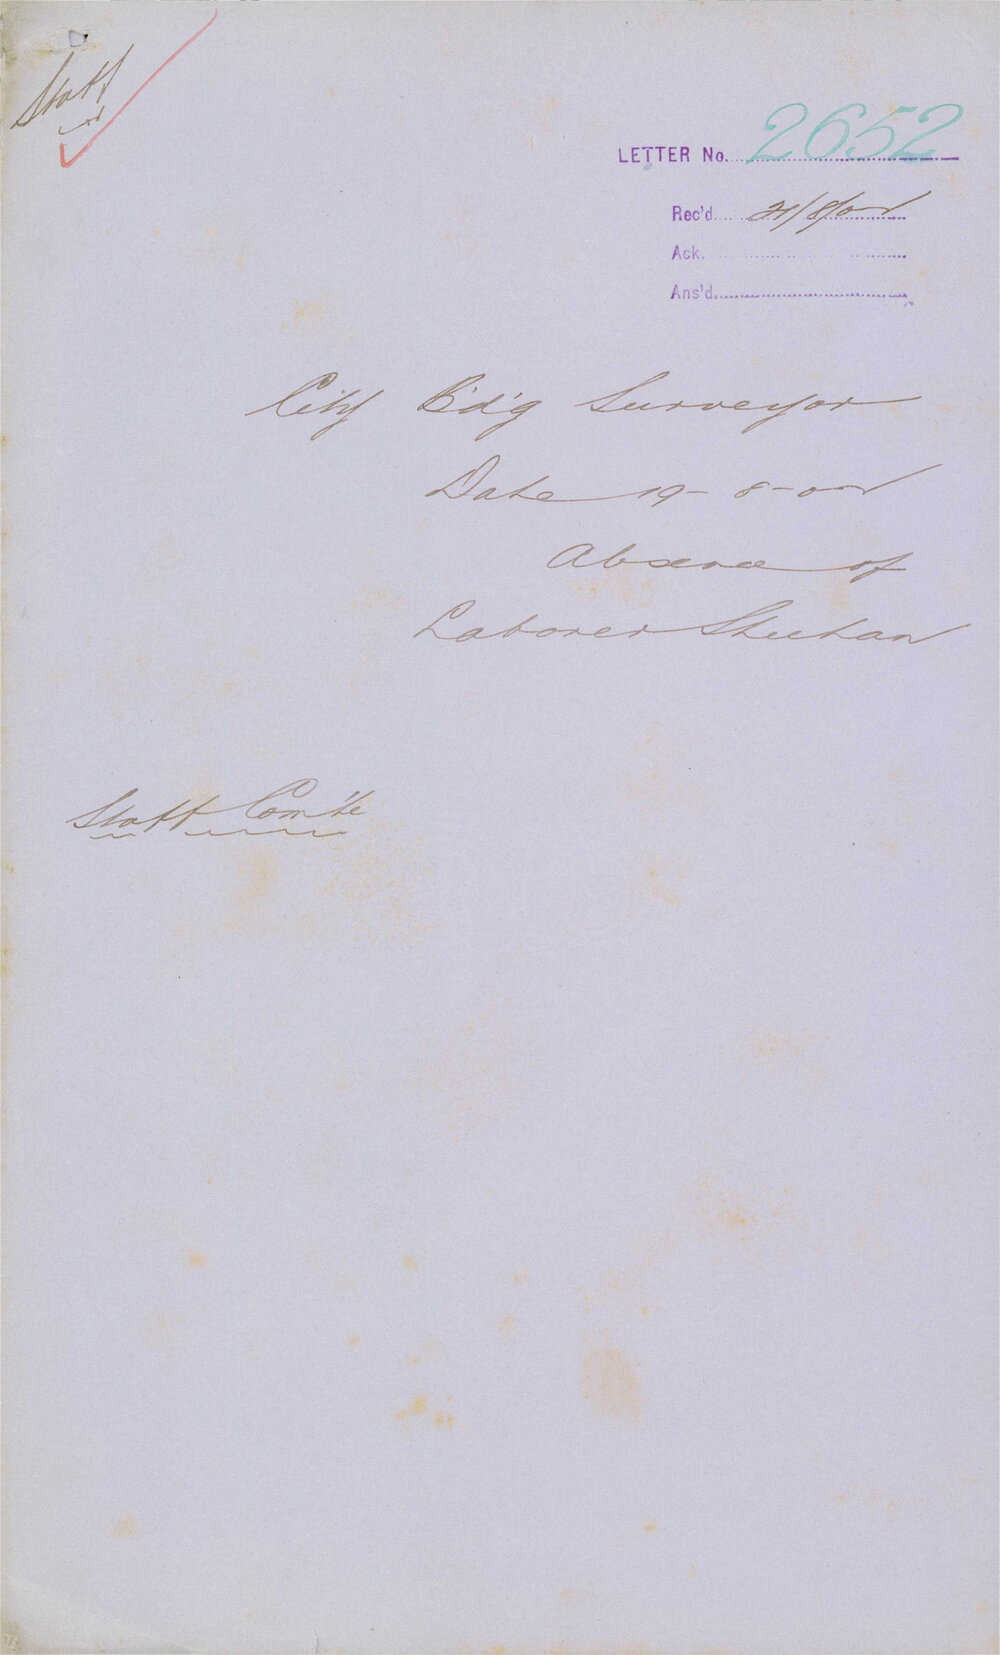 Staff
LETTER No. 2652
Rec'd 21/8/02
Ack.
Ans'd
City B'd'g Surveyor
Date 19-8-02
Absence of
Laborer Sheehan
Staff Com'te